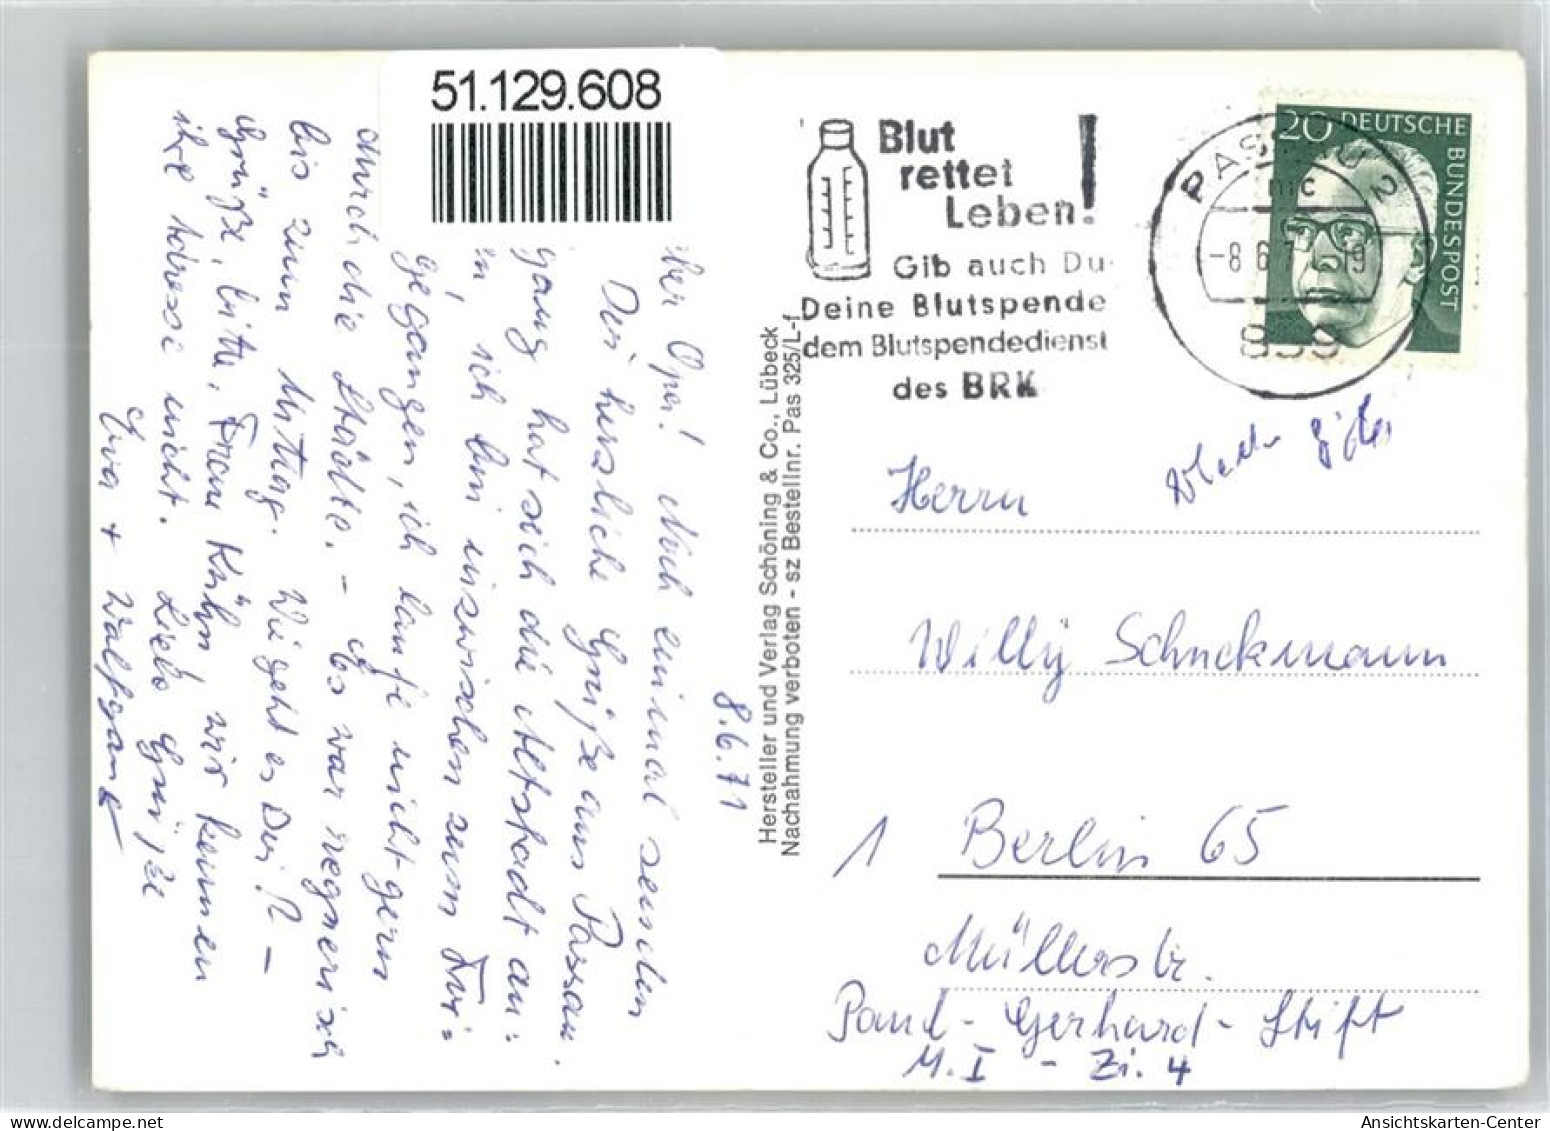 51.129.608
8.6.71
Opa! Noch einmal senden
Dir herzliche Grüße aus Passau.
gang hat sich die Altstadt an=
ich bin inzwischen zum Fri=
gegangen, ich laufe nicht gern
durch die Städte. - Es war regnerisch
bis zum Mittag. Wie geht es Dir? -
Grüße, bitte, Frau Kühn, wir kennen
ihre Adresse nicht. Liebe Grüße
Eva + Wolfgang
Hersteller und Verlag Schöning & Co., Lübeck
Nachahmung verboten - sz Bestellnr. Pas 325/L-f
Blut
rettet
Leben!
Gib auch Du
Deine Blutspende
dem Blutspendedienst
des BRK
PASSAU 2
mc
-8.6.
839
20 DEUTSCHE
BUNDESPOST
Herrn
Willy Schneckmann
1 Berlin 65
Müllerstr.
Paul-Gerhard-Stift
M.I - Zi. 4
Ansichtskarten-Center